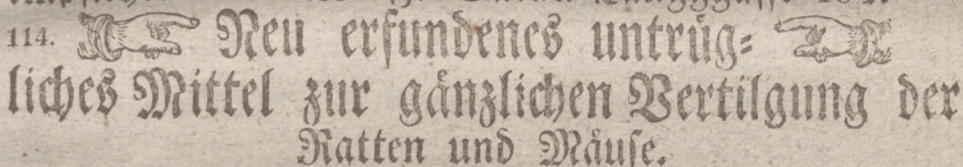 114. Neu erfundenes untrüg=
liches Mittel zur gänzlichen Vertilgung der
Ratten und Mäuse.